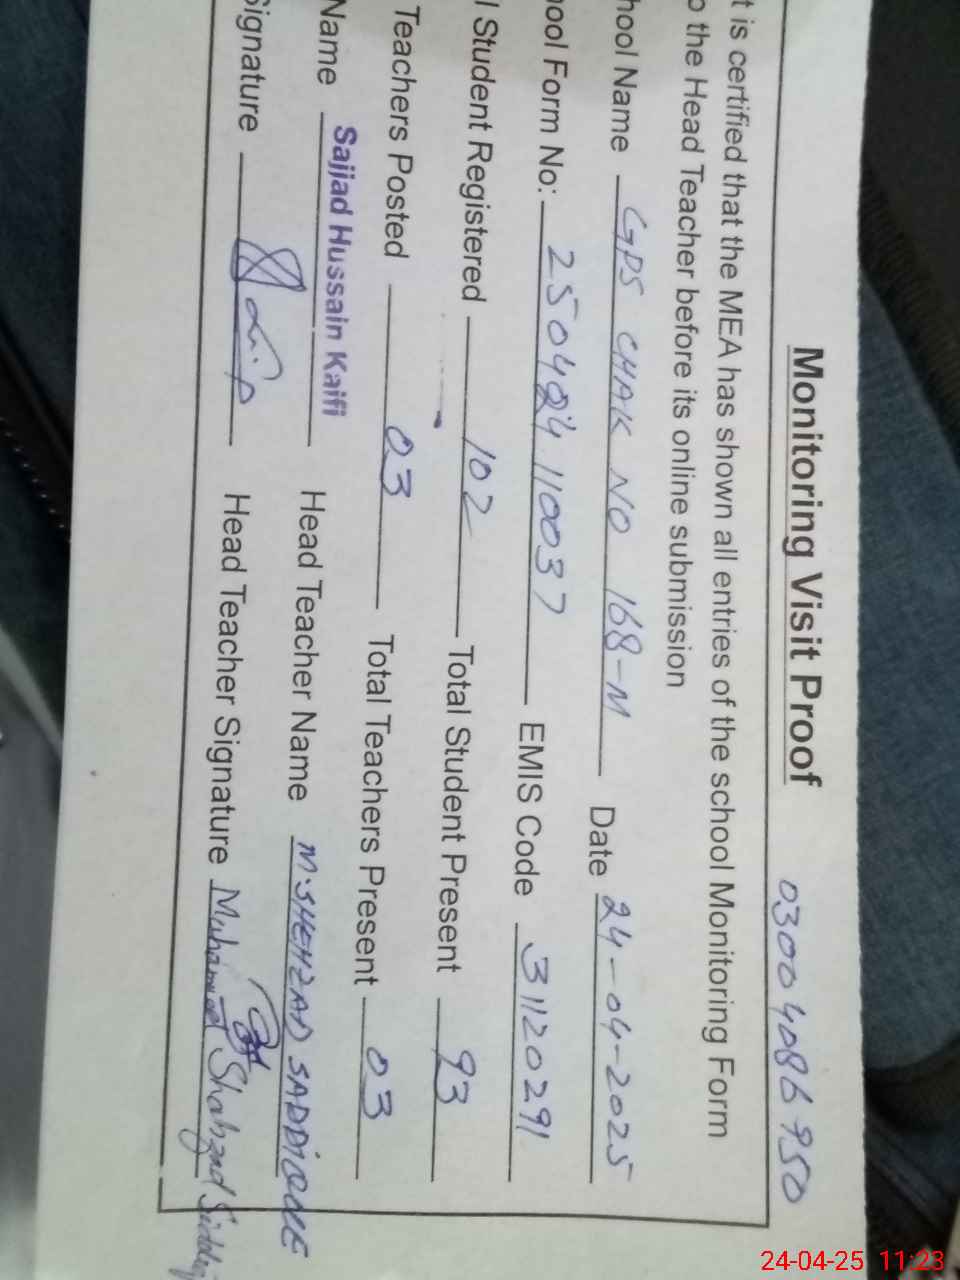 Monitoring Visit Proof 03004086950
t is certified that the MEA has shown all entries of the school Monitoring Form
o the Head Teacher before its online submission
hool Name GPS CHAK NO 168-M Date 24-04-2025
ool Form No: 250424110037 EMIS Code 31120291
l Student Registered 102 Total Student Present 93
Teachers Posted 03 Total Teachers Present 03
Name Sajjad Hussain Kaifi Head Teacher Name M.SHEHZAD SADDIQUE
Signature Head Teacher Signature Muhammad Shahzad Siddiq
24-04-25 11:23